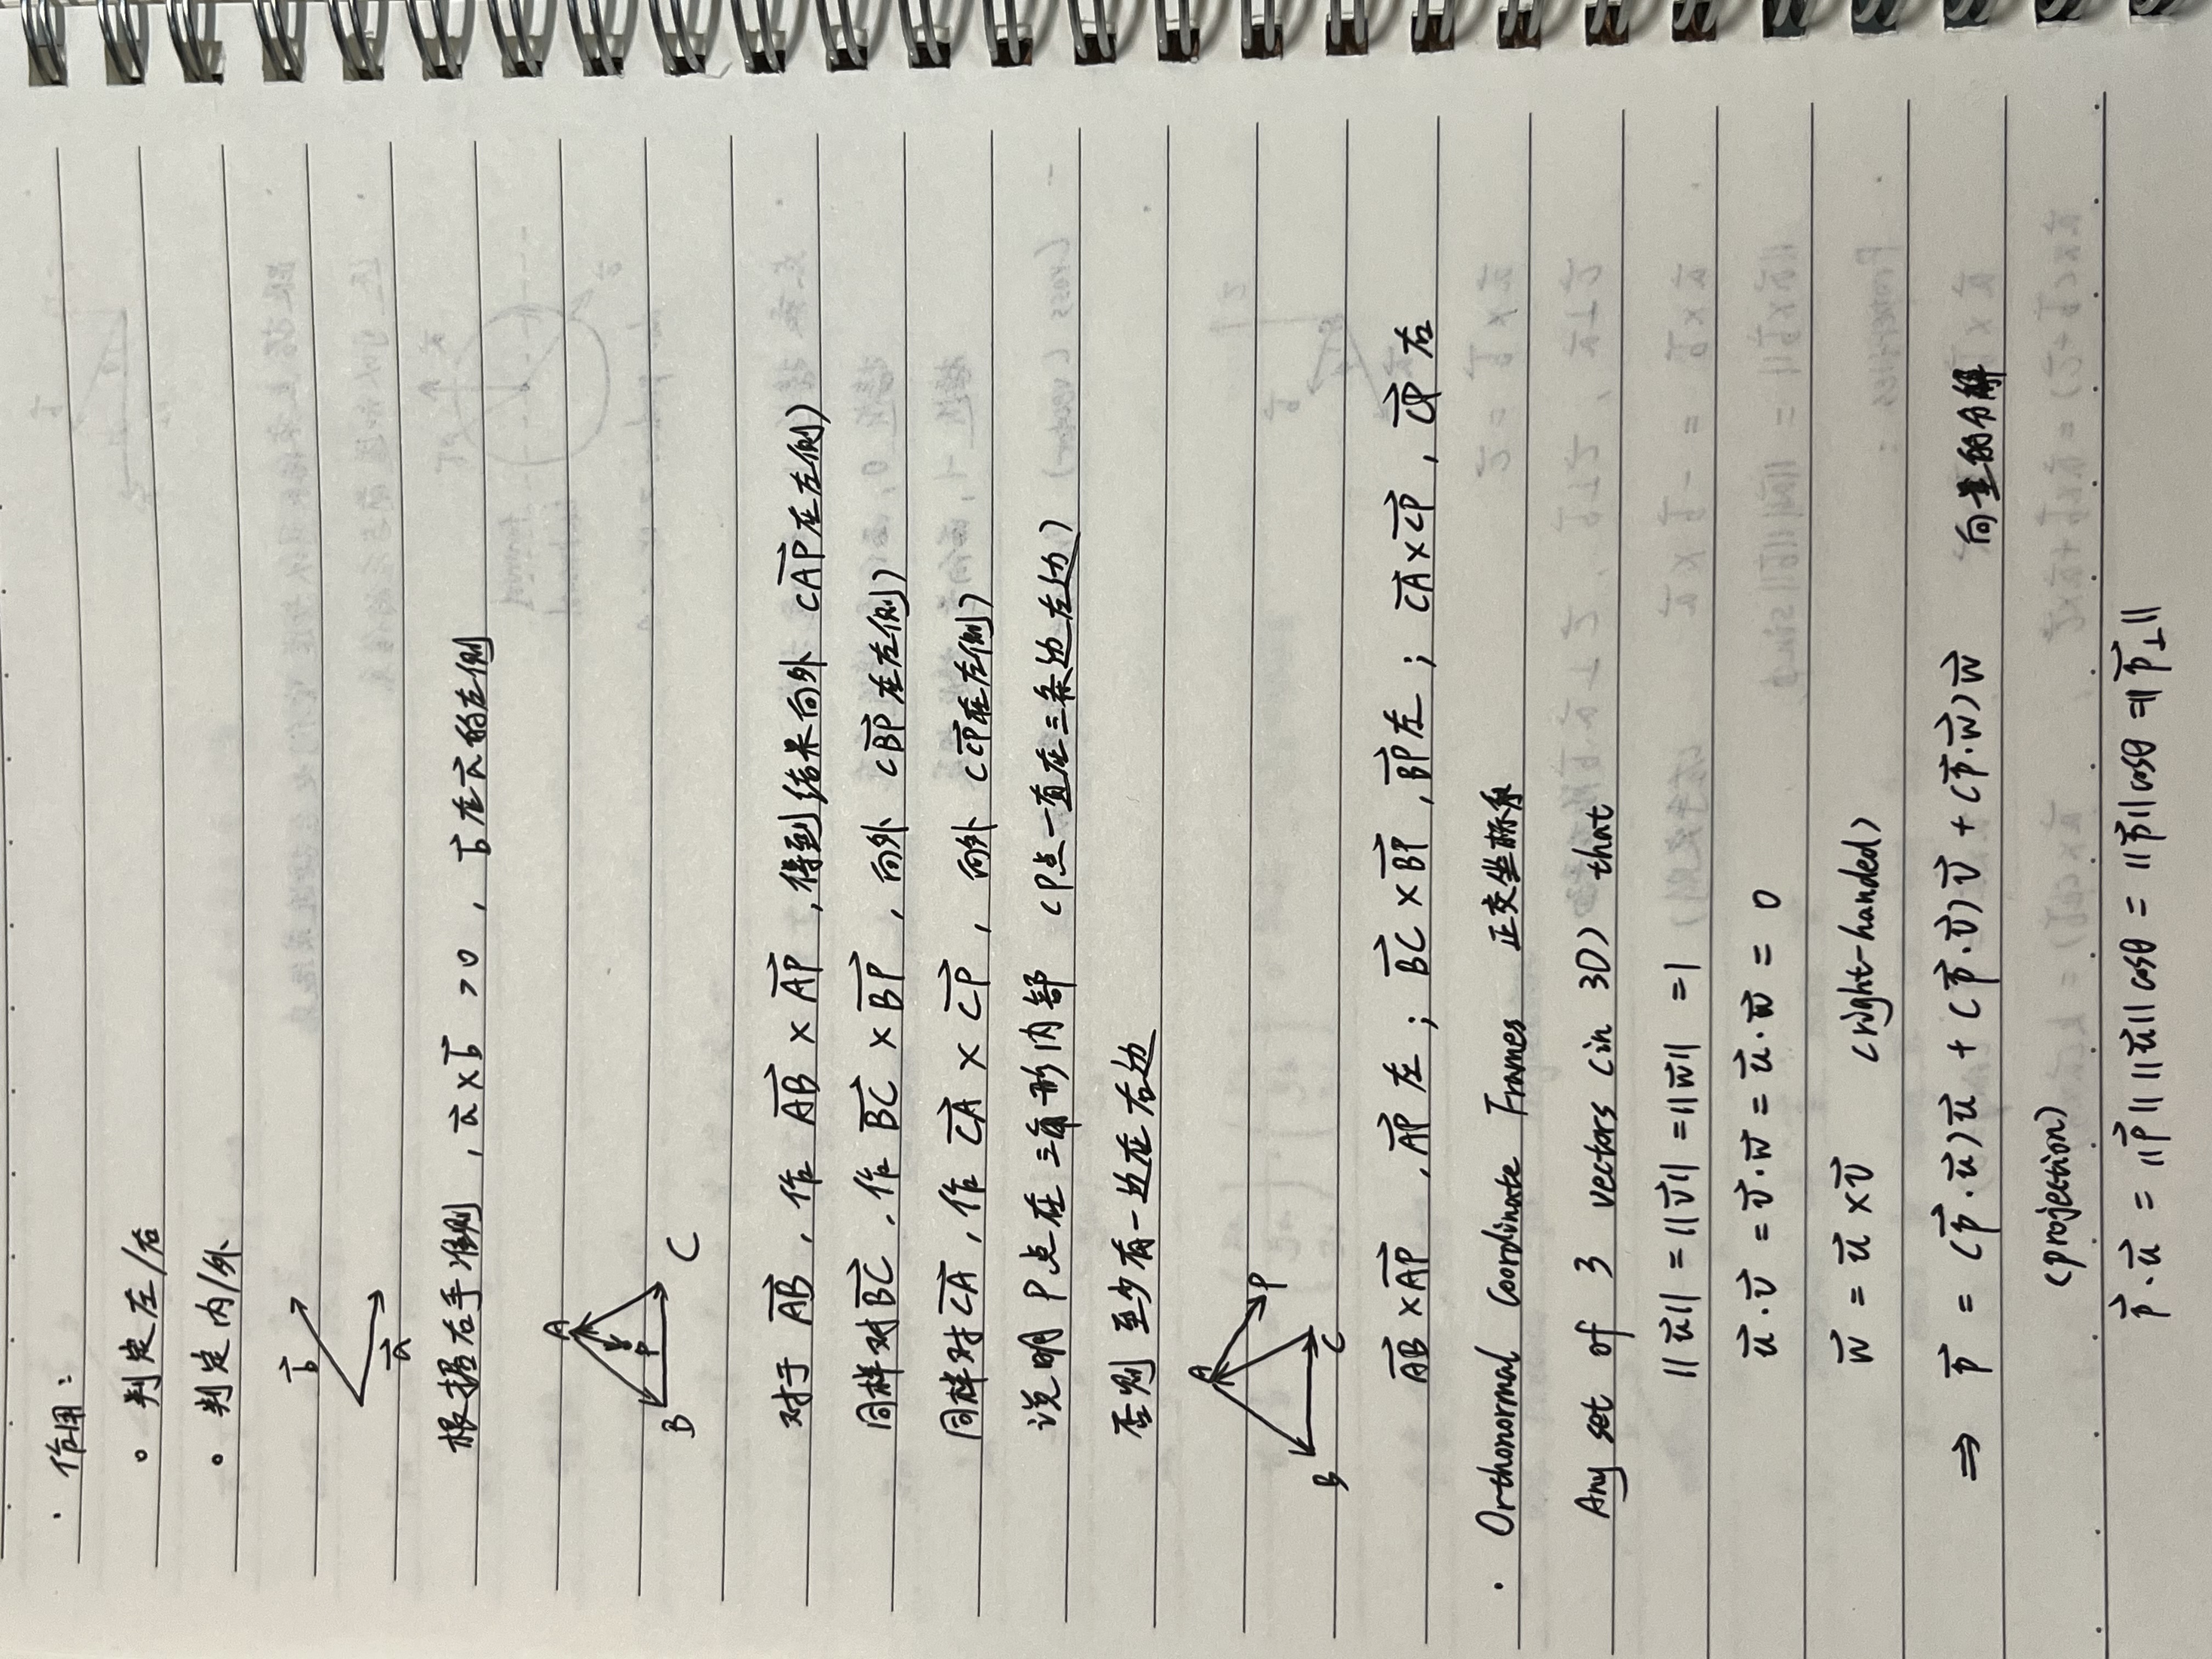 · 作用：
∘ 判定左/右
∘ 判定内/外
b⃗
a⃗
根据右手准则, a⃗ × b⃗ > 0, b⃗ 在 a⃗ 的左侧
A
P
B C
对于 AB⃗, 作 AB⃗ × AP⃗, 得到结果向外 (AP⃗在左侧)
同样对 BC⃗, 作 BC⃗ × BP⃗, 向外 (BP⃗在左侧)
同样对 CA⃗, 作 CA⃗ × CP⃗, 向外 (CP⃗在左侧)
说明 P点在三角形内部 (P点一直在三条边左边)
否则至少有一边在右边
A P
B C
AB⃗ × AP⃗, AP⃗ 左; BC⃗ × BP⃗, BP⃗ 左; CA⃗ × CP⃗, CP⃗ 右
· Orthonormal Coordinate Frames 正交坐标系
Any set of 3 vectors (in 3D) that
||u⃗|| = ||v⃗|| = ||w⃗|| = 1
u⃗ · v⃗ = v⃗ · w⃗ = u⃗ · w⃗ = 0
w⃗ = u⃗ × v⃗ (right-handed)
⇒ p⃗ = (p⃗ · u⃗)u⃗ + (p⃗ · v⃗)v⃗ + (p⃗ · w⃗)w⃗ 向量的分解
(projection)
p⃗ · u⃗ = ||p⃗|| ||u⃗|| cosθ = ||p⃗|| cosθ = ||p⃗⊥||